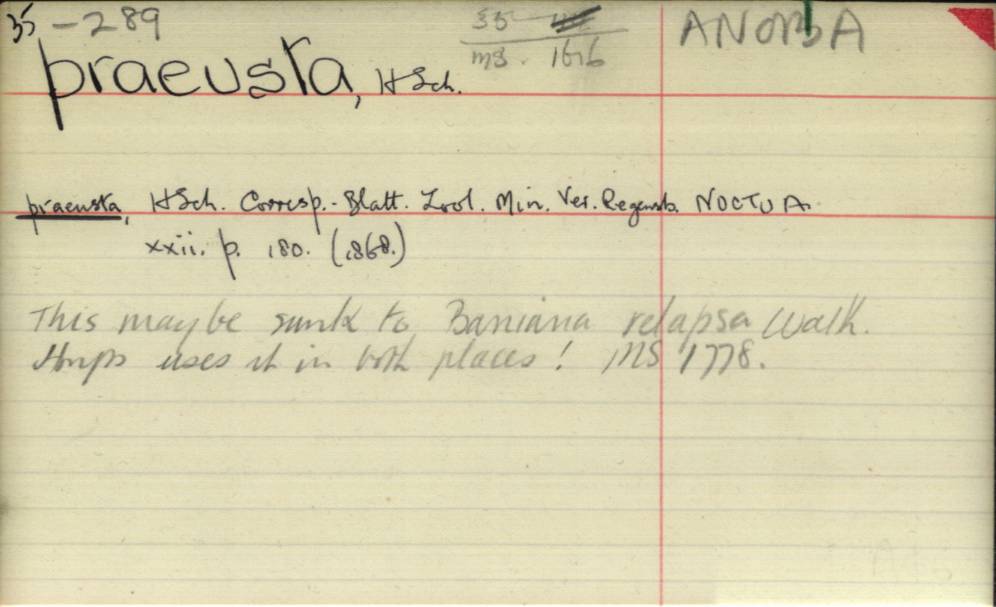 35 - 289
35
MS. 1616
ANOBA
praeusta, HSch.
praeusta, HSch. Corresp.-Blatt. Zool. Min. Ver. Regensb. NOCTUA.
xxii. p. 180. (1868.)
This may be sunk to Baniana relapsa Walk.
Hmps uses it in both places! MS 1778.